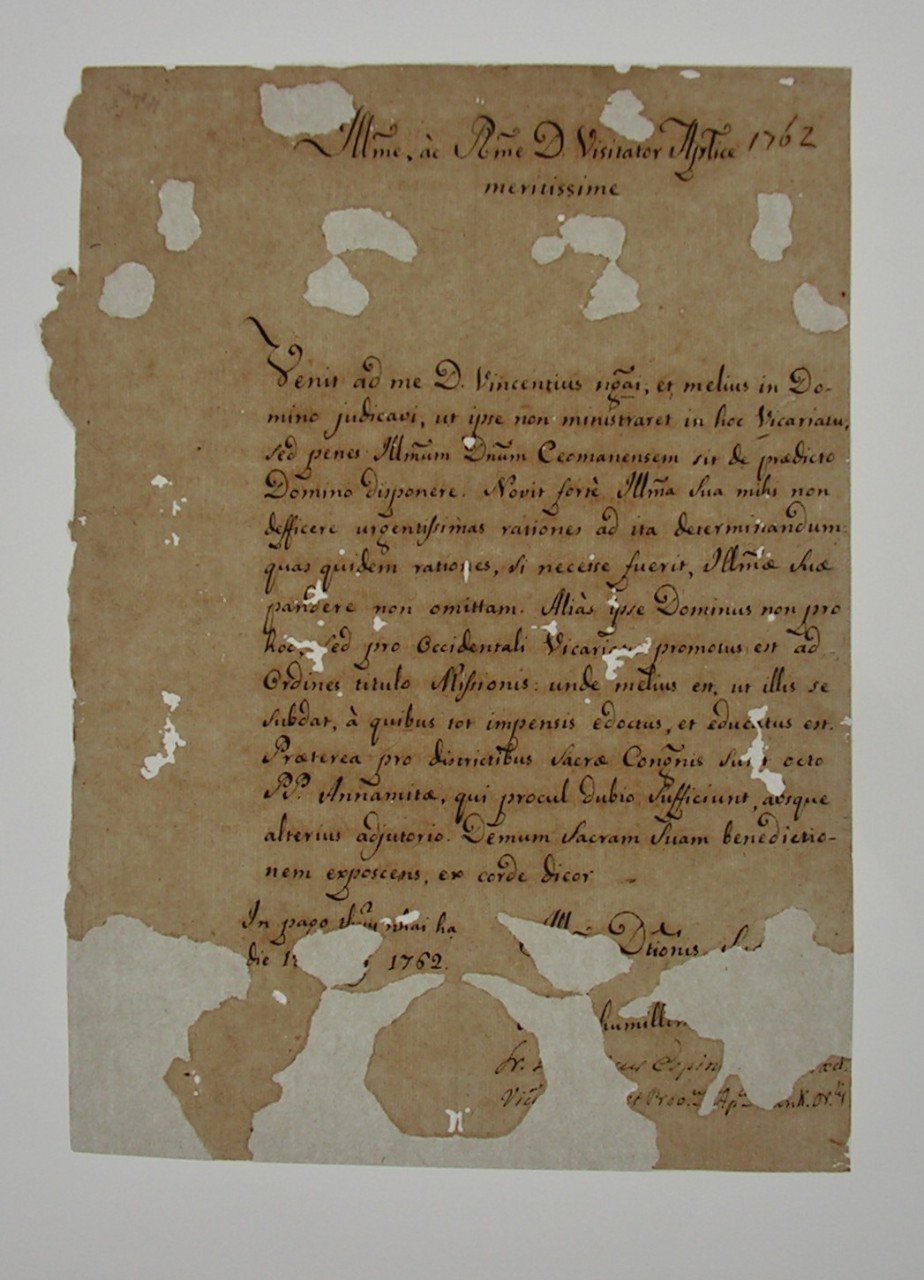 Illm̃e, àc Rm̃e D. Visitator Aplĩce 1762
meritissime
Venit ad me D. Vincentius ngãi, et melius in Do-
mino judicavi, ut ipse non ministraret in hoc Vicariatu,
sed penes Illm̃um Dnũm Ceomanensem sit de prædicto
Domino disponere. Novit fortè Illm̃a Sua mihi non
defficere urgentissimas rationes ad ita determinandum:
quas quidem rationes, si necesse fuerit, Illm̃æ Suæ
pandere non omittam. Aliàs ipse Dominus non pro
hoc, sed pro Occidentali promotus est ad
Ordines titulo Missionis: unde melius est, ut illis se
subdat, à quibus tot impensis edoctus, et educatus est.
Præterea pro districtibus Sacræ Congñis sunt octo
PP. Annamitæ, qui procul dubio sufficiunt, absque
alterius adjutorio. Demum Sacram Suam benedictio-
nem exposcens, ex corde dicor
In pago nhai ha
die 1762.
Dtĩonis
Fr. Espin